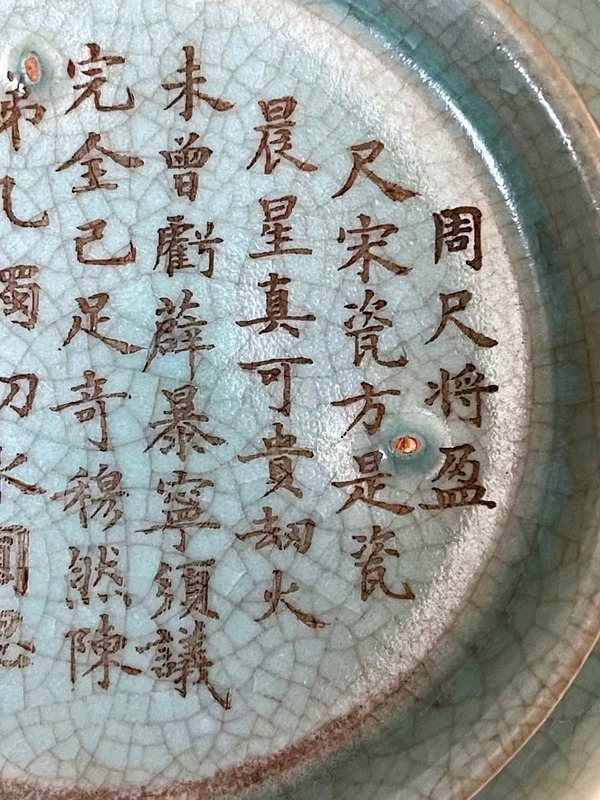 周尺将盈
尺宋瓷方是瓷
晨星真可貴刼火
未曾虧薜暴寧須議
完全己足奇穆然陳